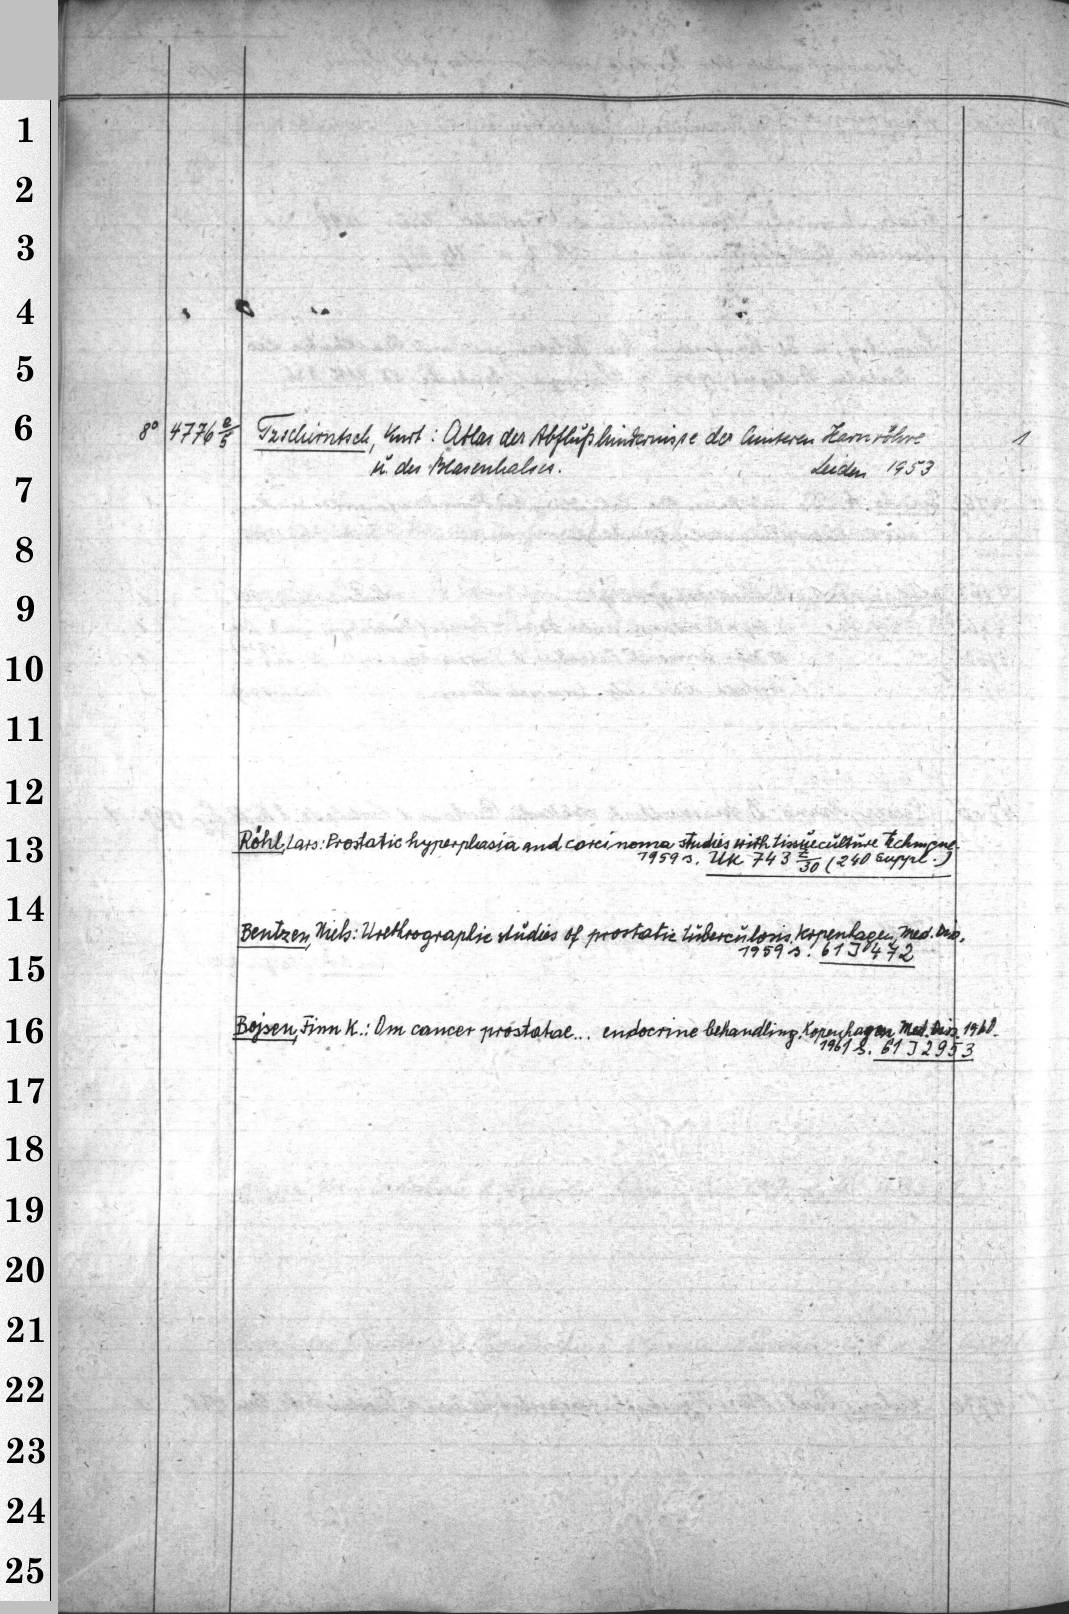 1
2
3
4
5
6
8° 4776 e/5 Tzschirntsch, Kurt: Atlas der Abflußhindernisse der hinteren Harnröhre 1
u. des Blasenhalses. Leiden 1953
7
8
9
10
11
12
13
Röhl, Lars: Prostatic hyperplasia and carcinoma studies with tissueculture technique.
1959 s. UK 743 z/30 (240 Suppl.)
14
Bentzen, Niels: Urethrographic studies of prostatic tuberculosis. Kopenhagen, Med. Diss.
1959 s. 61 J 472
15
16
Bojsen, Finn K.: Om cancer prostatae... endocrine behandling. Kopenhagen Med. Diss. 1960.
1961 s. 61 J 2953
17
18
19
20
21
22
23
24
25